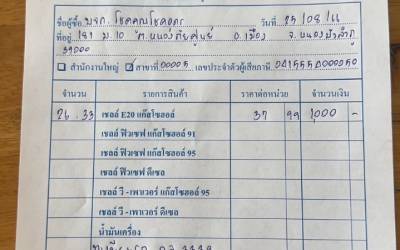 ชื่อผู้ซื้อ บจก. โชคคุณโชคอดร วันที่ 25/08/66
ที่อยู่ 191 ม.10 ต.หนองภัยศูนย์ อ.เมือง จ.หนองบัวลำภู
39000
สำนักงานใหญ่ สาขาที่ 00005 เลขประจำตัวผู้เสียภาษี
จำนวน รายการสินค้า ราคาต่อหน่วย จำนวนเงิน
26.33 เชลล์ E20 แก๊สโซฮอล์ 37 99 1,000 -
เชลล์ ฟิวเซฟ แก๊สโซฮอล์ 91
เชลล์ ฟิวเซฟ แก๊สโซฮอล์ 95
เชลล์ ฟิวเซฟ ดีเซล
เชลล์ วี-เพาเวอร์ แก๊สโซฮอล์ 95
เชลล์ วี-เพาเวอร์ ดีเซล
น้ำมันเครื่อง